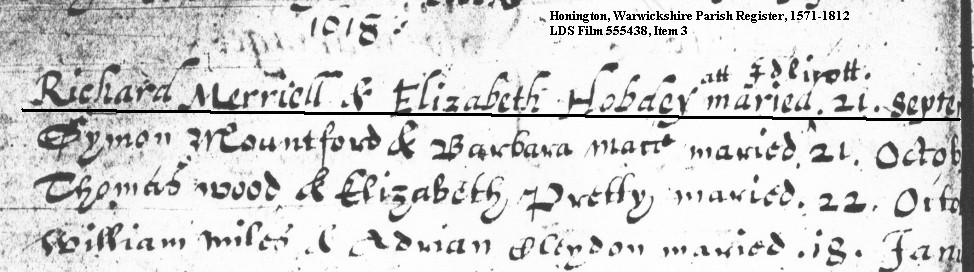 Honington, Warwickshire Parish Register, 1571-1812
LDS Film 555438, Item 3
1618
att
Richard Merriell & Elizabeth Hobdey maried. 21. Septe
Symon Mountford & Barbara maried. 21. Octob
Thomas wood & Elizabeth Pretty maried. 22. Octo
William miles & Adrian maried. 18. Janu